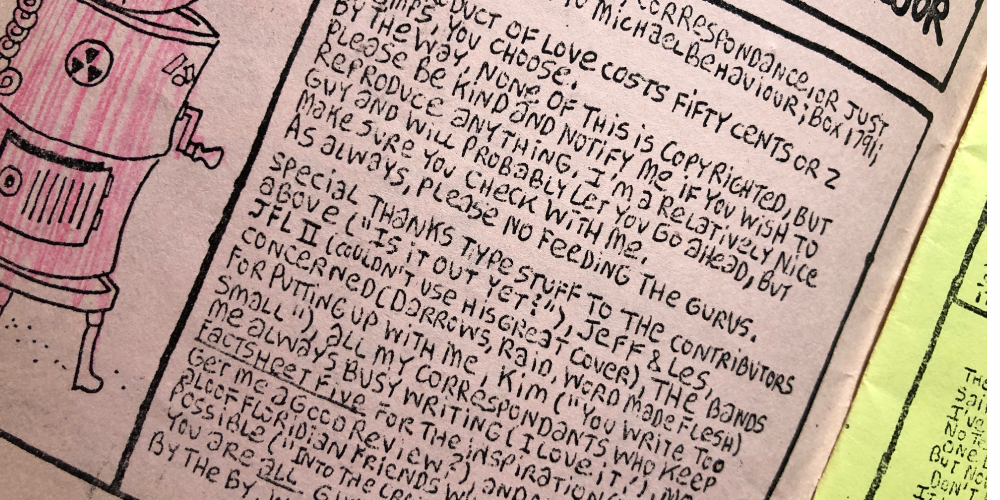 CORRESPONDANCE, OR JUST
TO MICHAEL BEHAVIOUR; BOX 1791;
DUCT OF LOVE COSTS FIFTY CENTS OR 2
YOU CHOOSE.
BY THE WAY, NONE OF THIS IS COPYRIGHTED, BUT
PLEASE BE KIND AND NOTIFY ME IF YOU WISH TO
REPRODUCE ANYTHING. I'M A RELATIVELY NICE
GUY AND WILL PROBABLY LET YOU GO AHEAD, BUT
MAKE SURE YOU CHECK WITH ME.
AS ALWAYS, PLEASE NO FEEDING THE GURUS.
SPECIAL THANKS TYPE STUFF TO THE CONTRIBUTORS
ABOVE ("IS IT OUT YET?"), JEFF & LES,
JFL II (COULDN'T USE HIS GREAT COVER), THE BANDS
CONCERNED (DARROWS, RAID, WORD MADE FLESH)
FOR PUTTING UP WITH ME, KIM ("YOU WRITE TOO
SMALL"), ALL MY CORRESPONDANTS WHO KEEP
ME ALWAYS BUSY WRITING (I LOVE IT!),
FACTSHEET FIVE FOR THE INSPIRATION
GET ME A GOOD REVIEW?), AND
ALOOF FLORIDIAN FRIENDS
POSSIBLE ("INTO THE
YOU ARE ALL
BY THE BY,